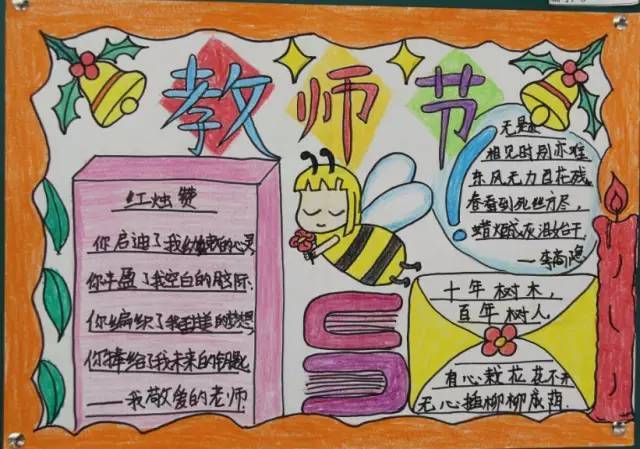 教师节
红烛赞
你启迪了我幼稚的心灵
你丰盈了我空白的脑际
你编织了我美的梦想
你捧给了我未来的钥匙
——我敬爱的老师
无题
相见时别亦难
东风无力百花残
春蚕到死丝方尽,
蜡炬成灰泪始干.
——李商隐
十年树木,
百年树人
有心栽花花不开
无心插柳柳成荫.